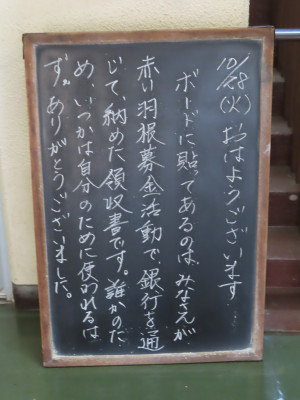 10/28(火)おはようございます
ボードに貼ってあるのは、みなさんが
赤い羽根募金活動で銀行を通
じて、納めた領収書です。誰かのた
め、いつかは自分のために使われるは
ず。ありがとうございました。